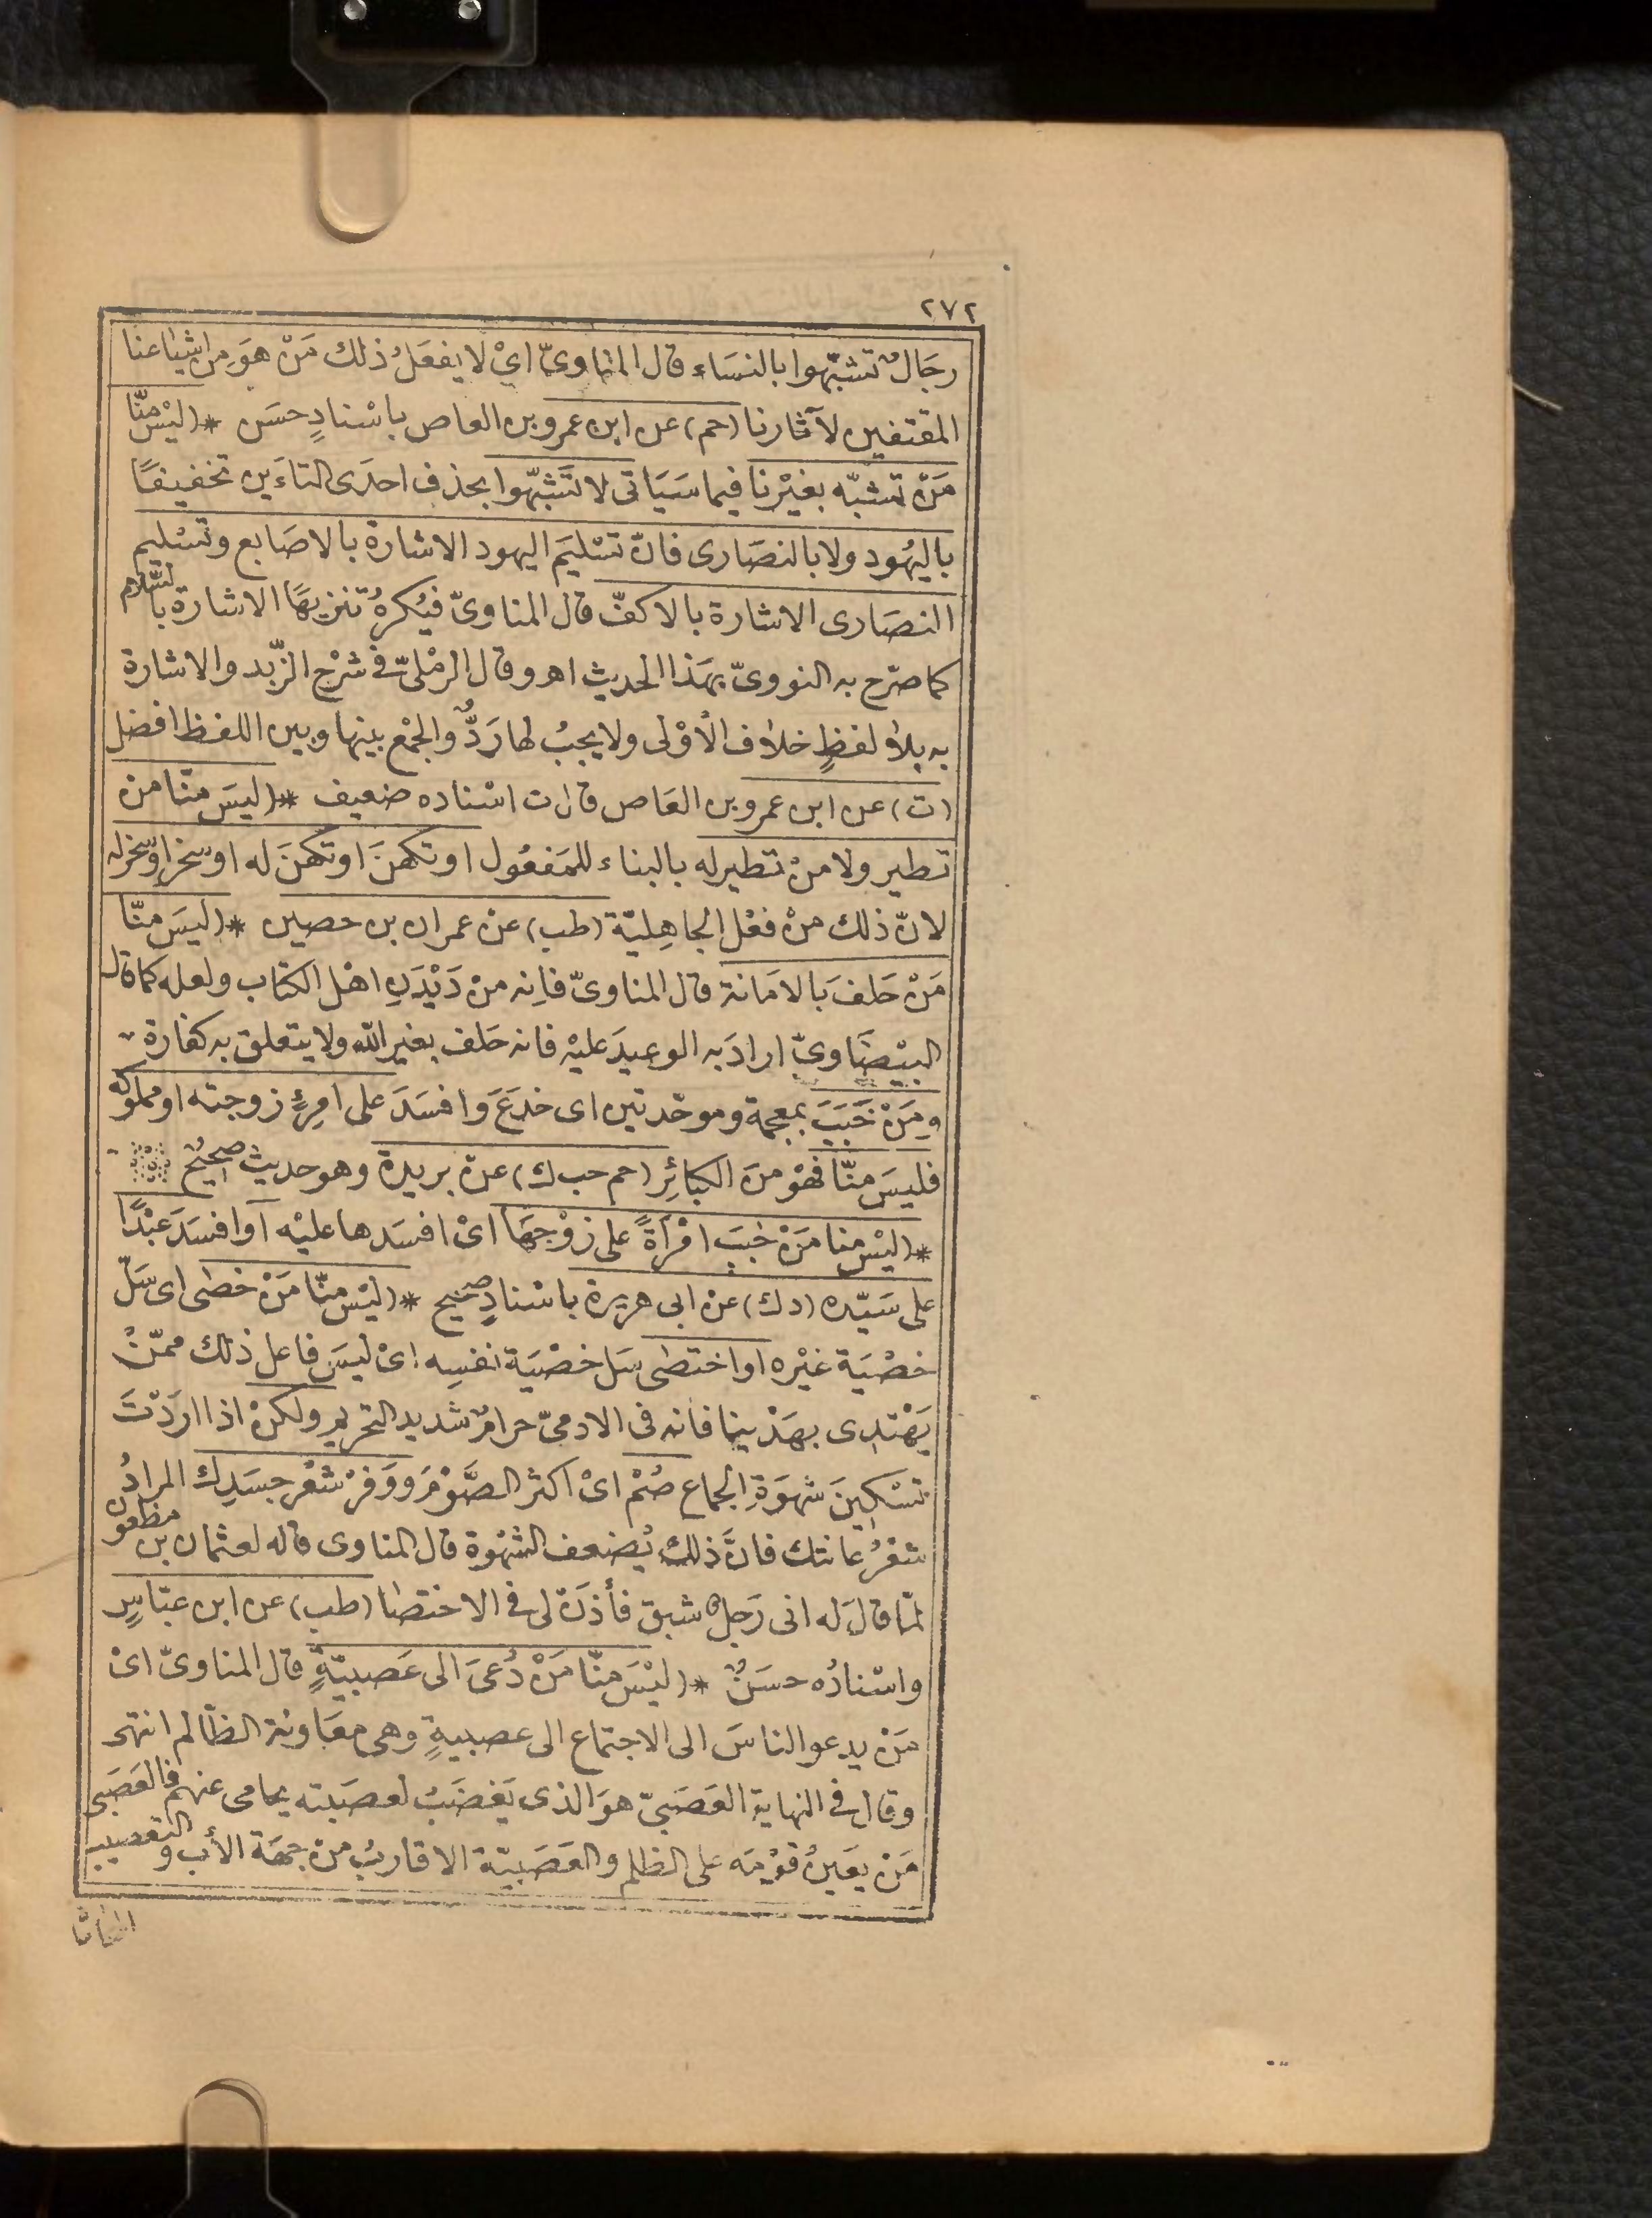 ٢٧٢
رجَالٌ تشبّهوا بالنسَاء قال المناوىّ اىْ لا يفعَلُ ذلك مَنْ هوَ مِن اشياعنا
المقتفين لآثارنا (حم) عن ابن عمرو بن العاص باسْنادٍ حسَن * (ليْسَ منّا
مَنْ تشبّه بغيْرنا فيما سَيَاتى لا تَشبّهوا بحذف احدَى التاءَين تخفيفًا
باليهُود ولا بالنصَارى فانّ تسْليَم اليهود الاشارة بالاصَابع وتسْليم
النصَارى الاشارة بالاكفّ قال المناوىّ فيُكرهُ تنزيهًا الاشارة بالسّلام
كما صرّح به النووىّ بهَذا الحديث اهـ وقال الرمْلىّ فى شرْح الزّبد والاشارة
به بلا لفظٍ خلاف الأوْلى ولا يجبُ لها رَدٌّ والجمْع بينها وبين اللفظ افضل
(ت) عن ابن عمرو بن العَاص قال ت اسْناده ضعيف * (ليسَ منّا منْ
تطير ولا منْ تطير له بالبناء للمَفعُول او تكهنَ او تكهنَ له او سحر او سحر له
لانّ ذلك منْ فعْل الجاهِليّة (طب) عنْ عمران بن حصين * (ليسَ منّا
مَنْ حَلفَ بالامَانة قال المناوىّ فاِنه منْ دَيْدَنِ اهْل الكتاب ولعله كما قال
البيْضَاوىّ ارادَ به الوعيدَ عليْه فانه حَلف بغير الله ولا يتعلق به كفارة
ومَنْ خَبَبَ بمعجمة وموحّدتين اى خدَعَ وافسَدَ على امرِئٍ زوجته او مملوكه
فليسَ منّا فهْوَ منَ الكبائِر (حم حب ك) عنْ بريدة وهو حديث صحيحٌ
* (ليْسَ منا مَنْ خببَ امْرَأةً على زوْجهَا اىْ افسَدها عليْه اَو افسَدَ عبْدًا
على سَيّده (د ك) عنْ ابى هريرة باسْنادٍ صحيح * (ليْسَ منّا مَنْ خصَى اى سَلّ
خصْيَة غيْره او اختصَى سَل خصْيَة نفسِه اىْ ليسَ فاعل ذلك ممّنْ
يَهْتدى بهَدْينا فانه فى الادمىّ حرامٌ شديد التحريم ولكنْ اذا ارَدْتَ
تسْكينَ شهوَةِ الجماع صُمْ اىْ اكثر الصَّوْمَ ووَفرْ شعْر جسَدِك المرادُ
شعْرُ عانتك فانَّ ذلك يُضعف الشهْوة قال المناوى قاله لعثمان بن مظعون
لمّا قالَ له انى رَجلٌ شبق فأذَنْ لى فى الاختصَا (طب) عن ابن عبّاسٍ
واسْنادُه حسَنٌ * (ليْسَ منّا مَنْ دُعىَ الى عَصبيّةٍ قال المناوىّ اىْ
مَنْ يدعو الناسَ الى الاجتماع الى عصبيةٍ وهى معَاونة الظالم انتهى
وقال فى النهاية العَصَبىّ هوَ الذى يَغضَبُ لعصَبته يحامى عنهم فالعَصَبى
مَنْ يعَينُ قوْمَه على الظلم والعَصَبيّة الاقاربُ منْ جهَة الأب والتعصيب